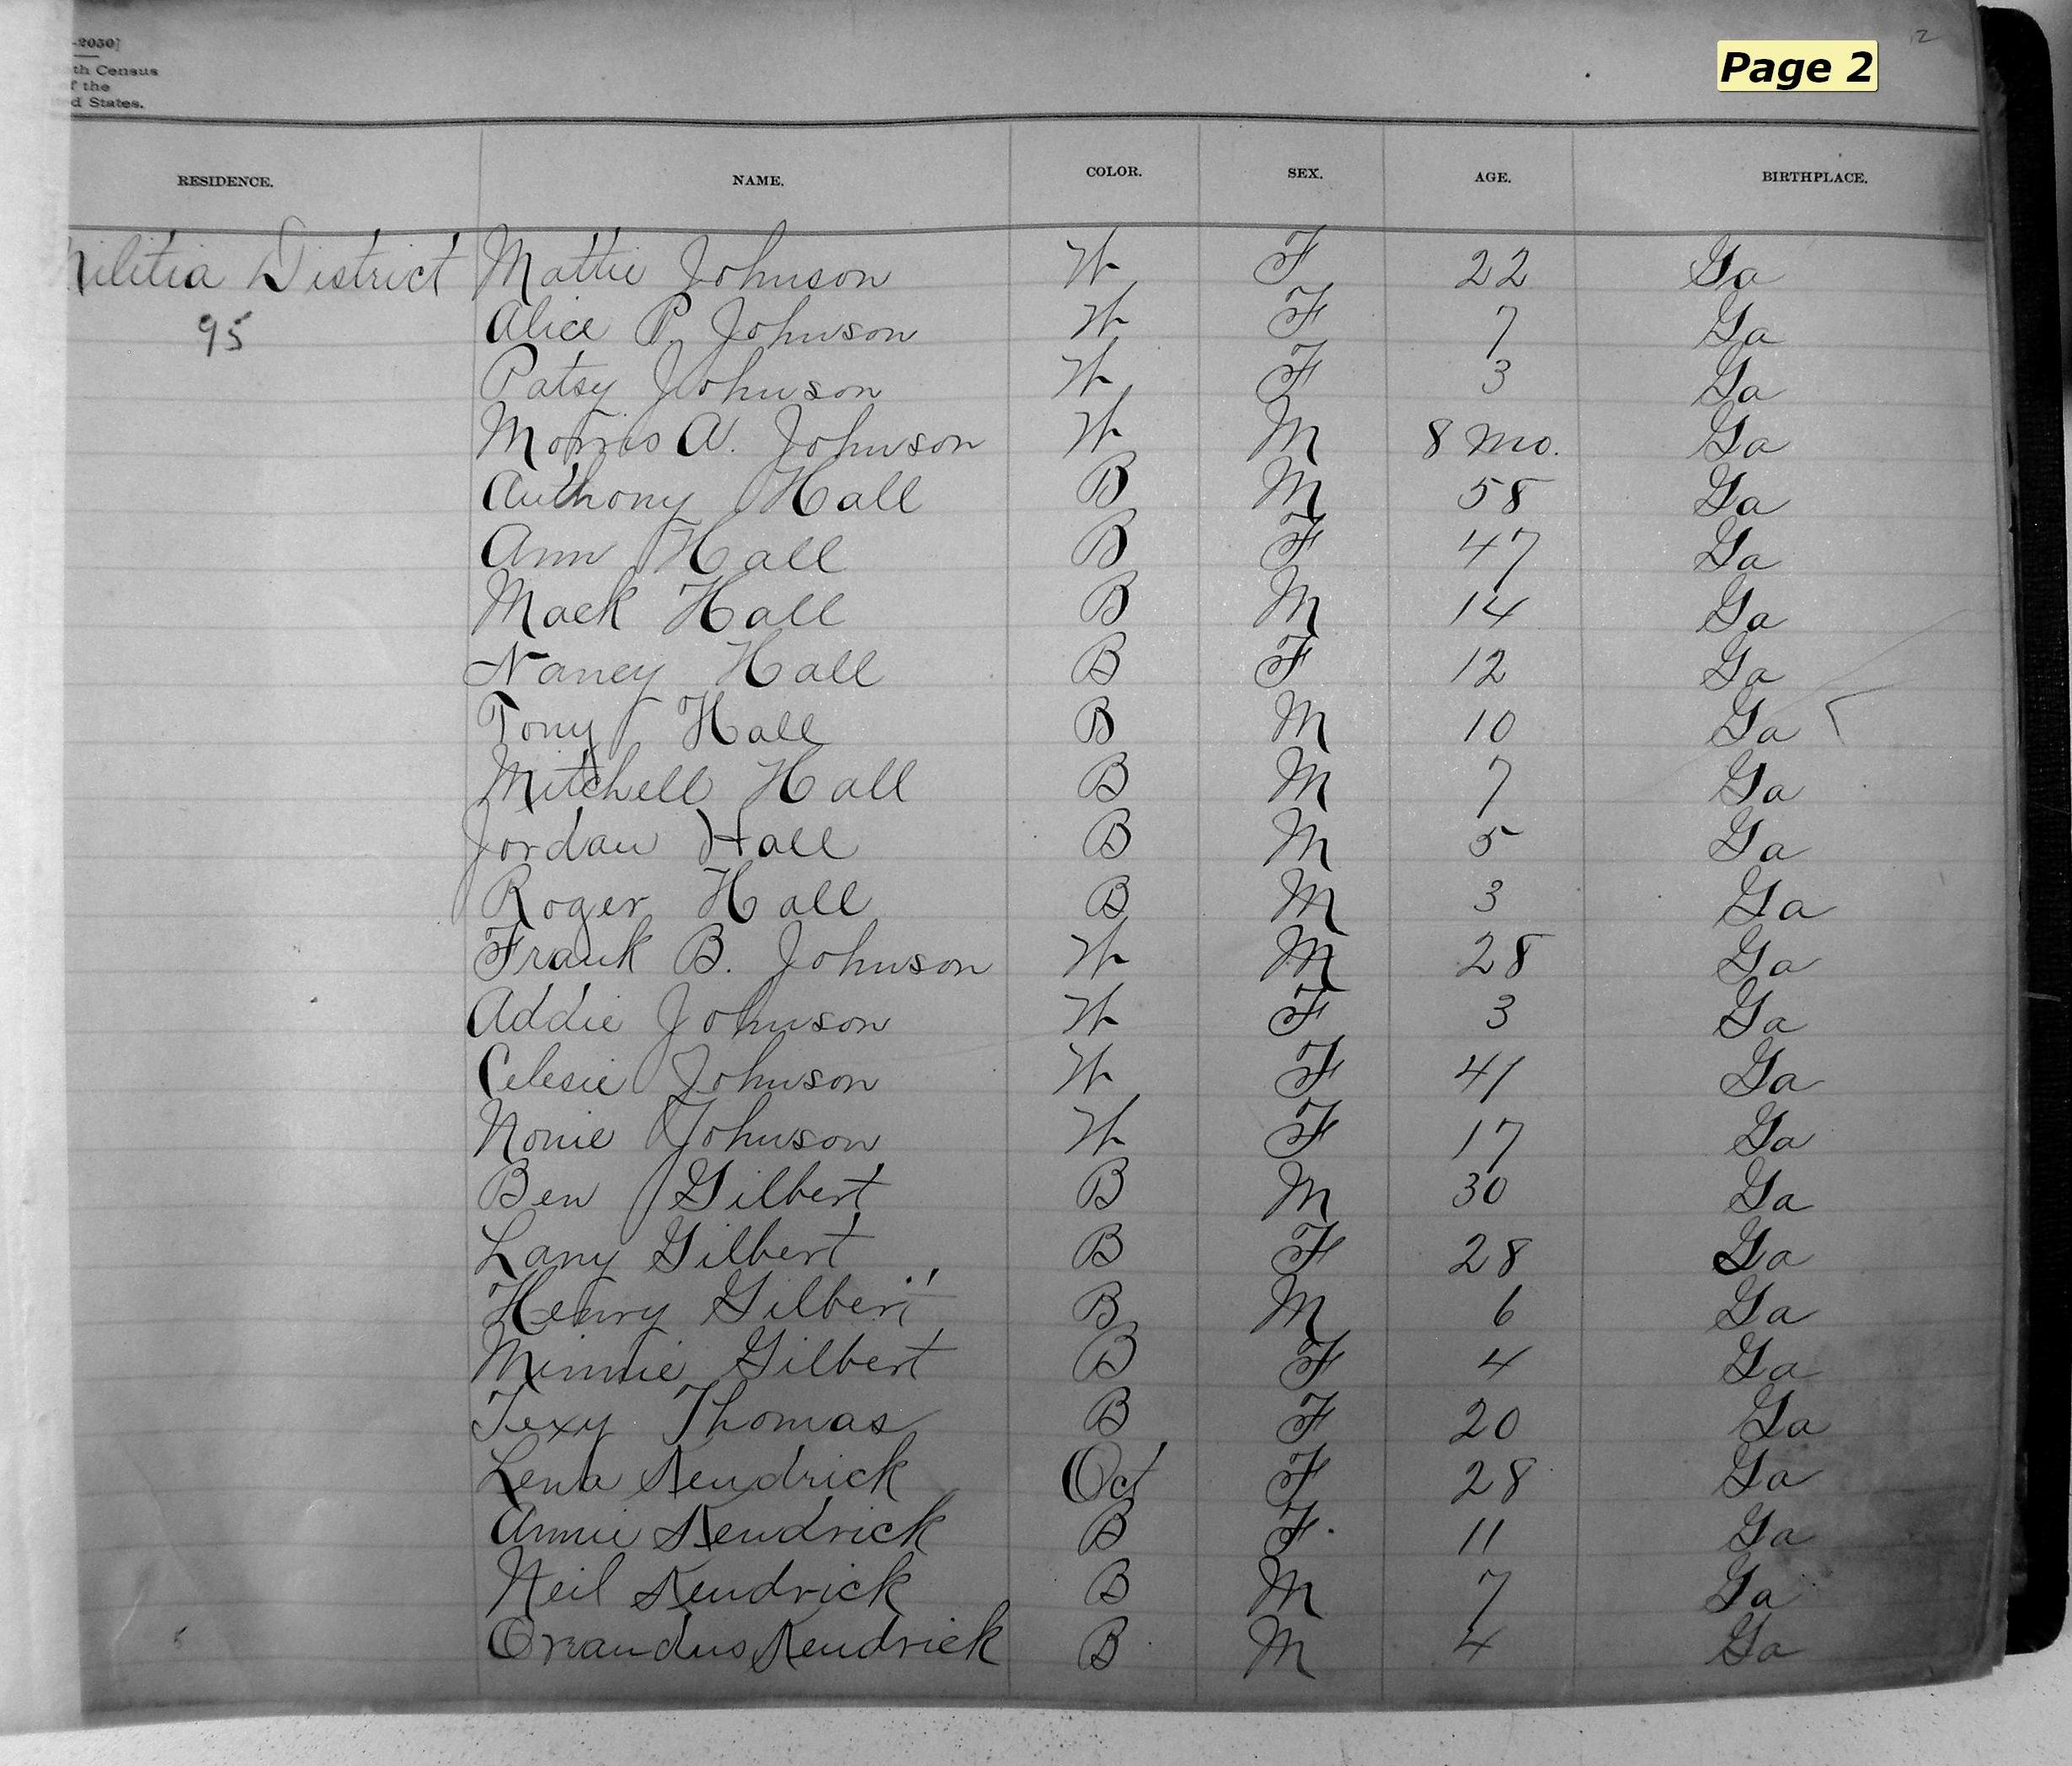 -2050]
th Census
f the
ed States.
Page 2
12
RESIDENCE. NAME. COLOR. SEX. AGE. BIRTHPLACE.
Militia District Mattie Johnson W F 22 Ga
95 Alice P. Johnson W F 7 Ga
Patsy Johnson W F 3 Ga
Morris A. Johnson W M 8 mo. Ga
Anthony Hall B M 58 Ga
Ann Hall B F 47 Ga
Mack Hall B M 14 Ga
Nancy Hall B F 12 Ga
Tony Hall B M 10 Ga
Mitchell Hall B M 7 Ga
Jordan Hall B M 5 Ga
Roger Hall B M 3 Ga
Frank B. Johnson W M 28 Ga
Addie Johnson W F 3 Ga
Celesie Johnson W F 41 Ga
Nonie Johnson W F 17 Ga
Ben Gilbert B M 30 Ga
Lany Gilbert B F 28 Ga
Henry Gilbert B M 6 Ga
Minnie Gilbert B F 4 Ga
Texy Thomas B F 20 Ga
Lena Kendrick Oct F 28 Ga
Annie Kendrick B F 11 Ga
Neil Kendrick B M 7 Ga
Kendrick B M 4 Ga